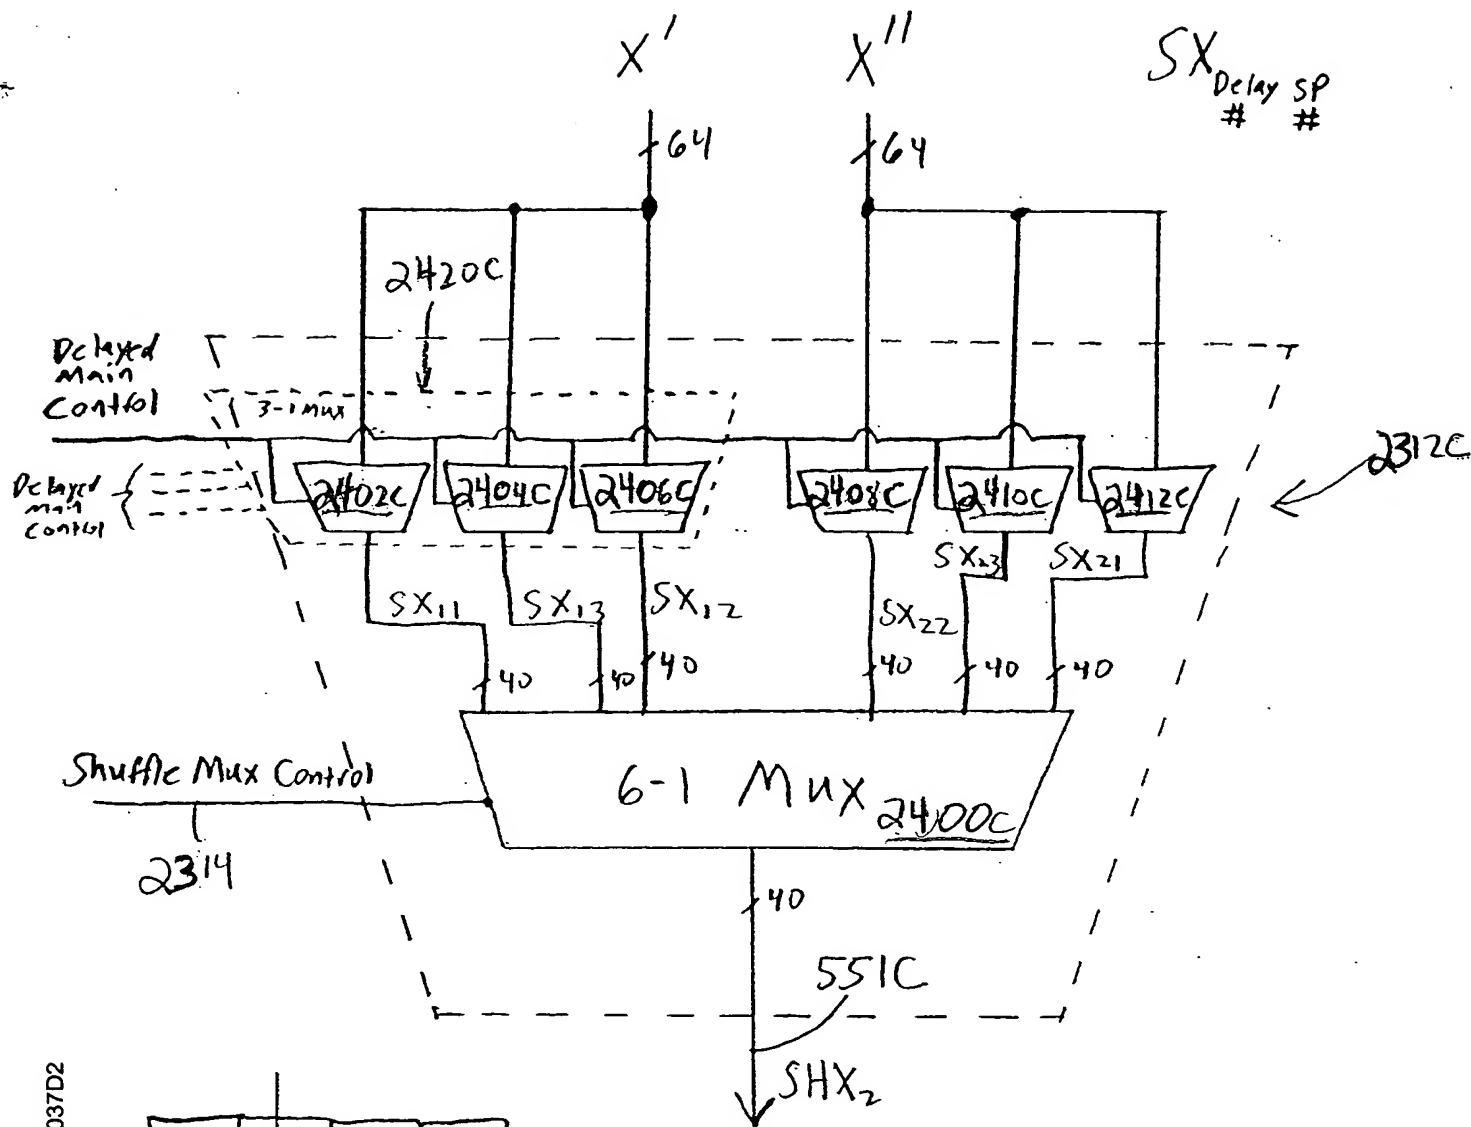 X' X'' SX Delay # SP #
64 64
2420C
Delayed
Main
Control
3-1 Mux
2312C
Delayed
Main
Control
2402C 2404C 2406C 2408C 2410C 2412C
SX23 SX21
SX11 SX13 SX12 SX22
40 40 40 40 40 40
Shuffle Mux Control
6-1 Mux 2400C
2314
40
551C
SHX2
037D2